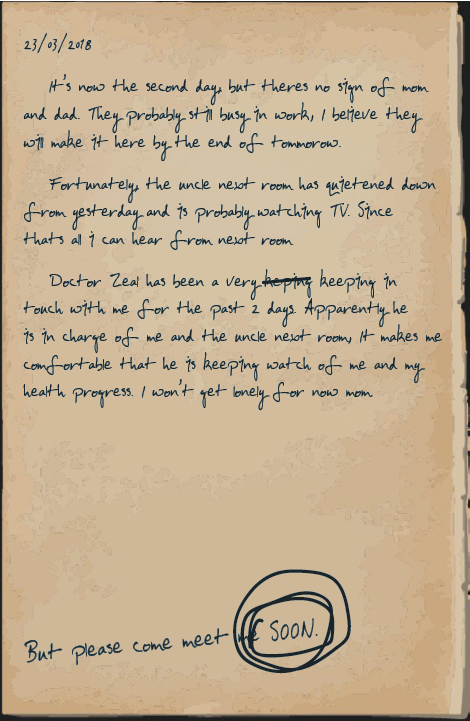 23/03/2018
It's now the second day, but theres no sign of mom
and dad. They probably still busy in work, I believe they
will make it here by the end of tommorow.
Fortunately, the uncle next room has quietened down
from yesterday and is probably watching TV. Since
thats all i can hear from next room
Doctor Zeal has been a very keping keeping in
touch with me for the past 2 days. Apparently he
is in charge of me and the uncle next room, It makes me
comfortable that he is keeping watch of me and my
health progress. I won't get lonely for now mom.
But please come meet me SOON.